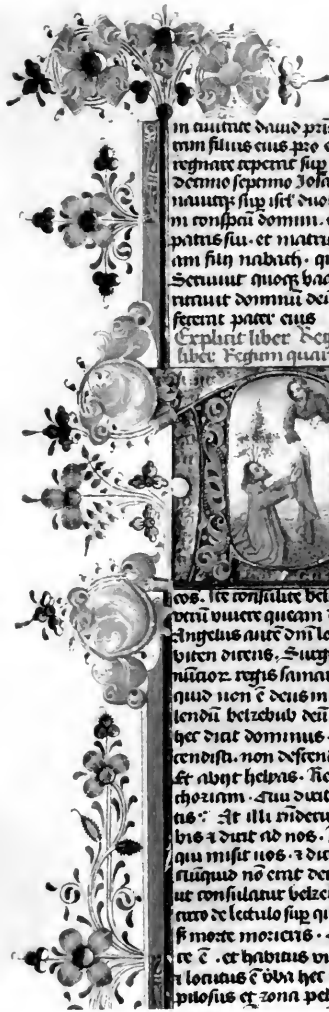 in ciuitate dauid pri
ram filius eius pro e
regnare ceperat sup
decimo septimo Josa
nauitqȝ sup isrl duo
in conspcū domini.
patris sui. et matris
am filij nabath. qu
Seruiuit quoqȝ baa
ritauit dominū deū
fecerat pater eius
Explicit liber Reg
liber Regum quar
eos. Ite consulite bel
utrū viuere queam
Angelus autē dn̄i lo
biten dicens. Surge
nūcior. regis samar
quid non ē deus in
lendū belzebub deū
hec dicit dominus.
cendisti. non descend
Et abijt helyas. Re
choziam. Qui dixit
tis? At illi rn̄derūt
bis ⁊ dixit ad nos.
qui misit uos. ⁊ dic
Nūquid nō erat de
ut consulatur belze
citco de lectulo sup qu
s morte morieris.
te ē. et habitus vi
⁊ locutus ē v̄ba hec
pilosus et zona pel